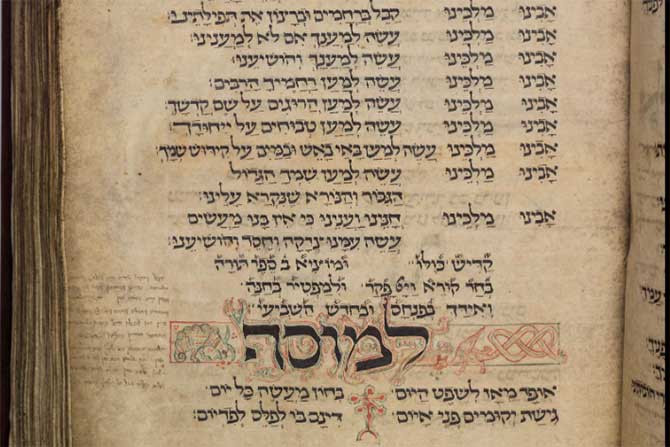 אבינו מלכינו קבל ברחמים וברצון את תפילתינו
אבינו מלכינו עשה למענך אם לא למענינו
אבינו מלכינו עשה למענך והושיענו:
אבינו מלכינו עשה למען רחמיך הרבים:
אבינו מלכינו עשה למען הרוגים על שם קדשך:
אבינו מלכינו עשה למען טבוחים על ייחודך:
אבינו מלכינו עשה למען באי באש ובמים על קידוש שמך:
אבינו מלכינו עשה למען שמך הגדול
הגבור והנורא שנקרא עלינו:
אבינו מלכינו חנינו ועניינו כי אין בנו מעשים
עשה עמנו צדקה וחסד והושיענו:
קדיש כולו ומוציא ב ספר תורה
בחד קורא ויי פקד ולמפטיר בחנה
ואידך בפנחס ובחדש השביעי
למוסף
אופד מאז לשפט היום בחון מעשה כל יום
גישת יקומים פני איום דינם בו לפלס לפדיום: